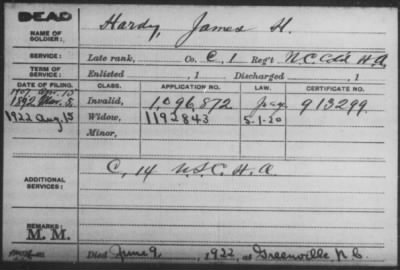 DEAD
NAME OF SOLDIER:
Hardy, James H.
SERVICE:
Late rank, Co. C, 1 Reg't N.C. Cld H.A.
TERM OF SERVICE:
Enlisted , 1 Discharged , 1
DATE OF FILING. CLASS. APPLICATION NO. LAW. CERTIFICATE NO.
1892 Mar. 8 Invalid, 1,096,872 913299.
1922 Aug 15 Widow, 1192843 5-1-20
Minor,
ADDITIONAL SERVICES:
C, 14 U.S.C.H.A.
REMARKS:
M. M.
Died June 9, , 1922, at Greenville N.C.